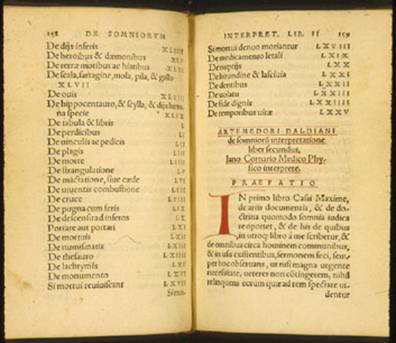 158 DE SOMNIORVM
De dijs inferis XLIIII
De heroibus & dæmonibus XLV
De terræ motibus ac hiatibus
De scala, sartagine, mola, pila, & gallo
XLVII
De ouis XLVIII
De hippocentauro, & scylla, & dijs
na specie XLIX
De tabula & libris L
De perdicibus LI
De uinculis ac pedicis LII
De plagis LIII
De morte LIIII
De strangulatione LV
De mactatione, siue cæde LVI
De uiuentis combustione LVII
De cruce LVIII
De pugna cum feris LIX
De descensu ad inferos LX
Portare aut portari LXI
De mortuis LXII
De numismatis LXIII
De thesauro LXIIII
De lachrymis LXV
De monumento LXVI
Si mortui reuiuiscant LVII
Si mor-
INTERPRET. LIB. II 159
Si mortui denuo moriantur LXVIII
De medicamento letali LXIX
De nuptijs LXX
De hirundine & luscinia LXXI
De dentibus LXXII
De uolatu LXXIII
De fide dignis LXXIIII
De temporibus uitæ LXXV
ARTEMIDORI DALDIANI
de somniorũ interpretatione
liber secundus,
Iano Cornario Medico Phy-
sico interprete.
PRAEFATIO
IN primo libro Cassi Maxime,
de artis documentis, & de do-
ctrina quomodo somnia iudica
re oportet, & de his de quibus
in utroq; libro à me scribetur, &
de omnibus circa hominem communibus,
& in usu existentibus, sermonem feci, sem-
per hoc obseruans, ut nisi magna urgente
necessitate, ueteres non cõtingerem, nihil
relinquens eorum quæ ad rem spectare ui-
dentur